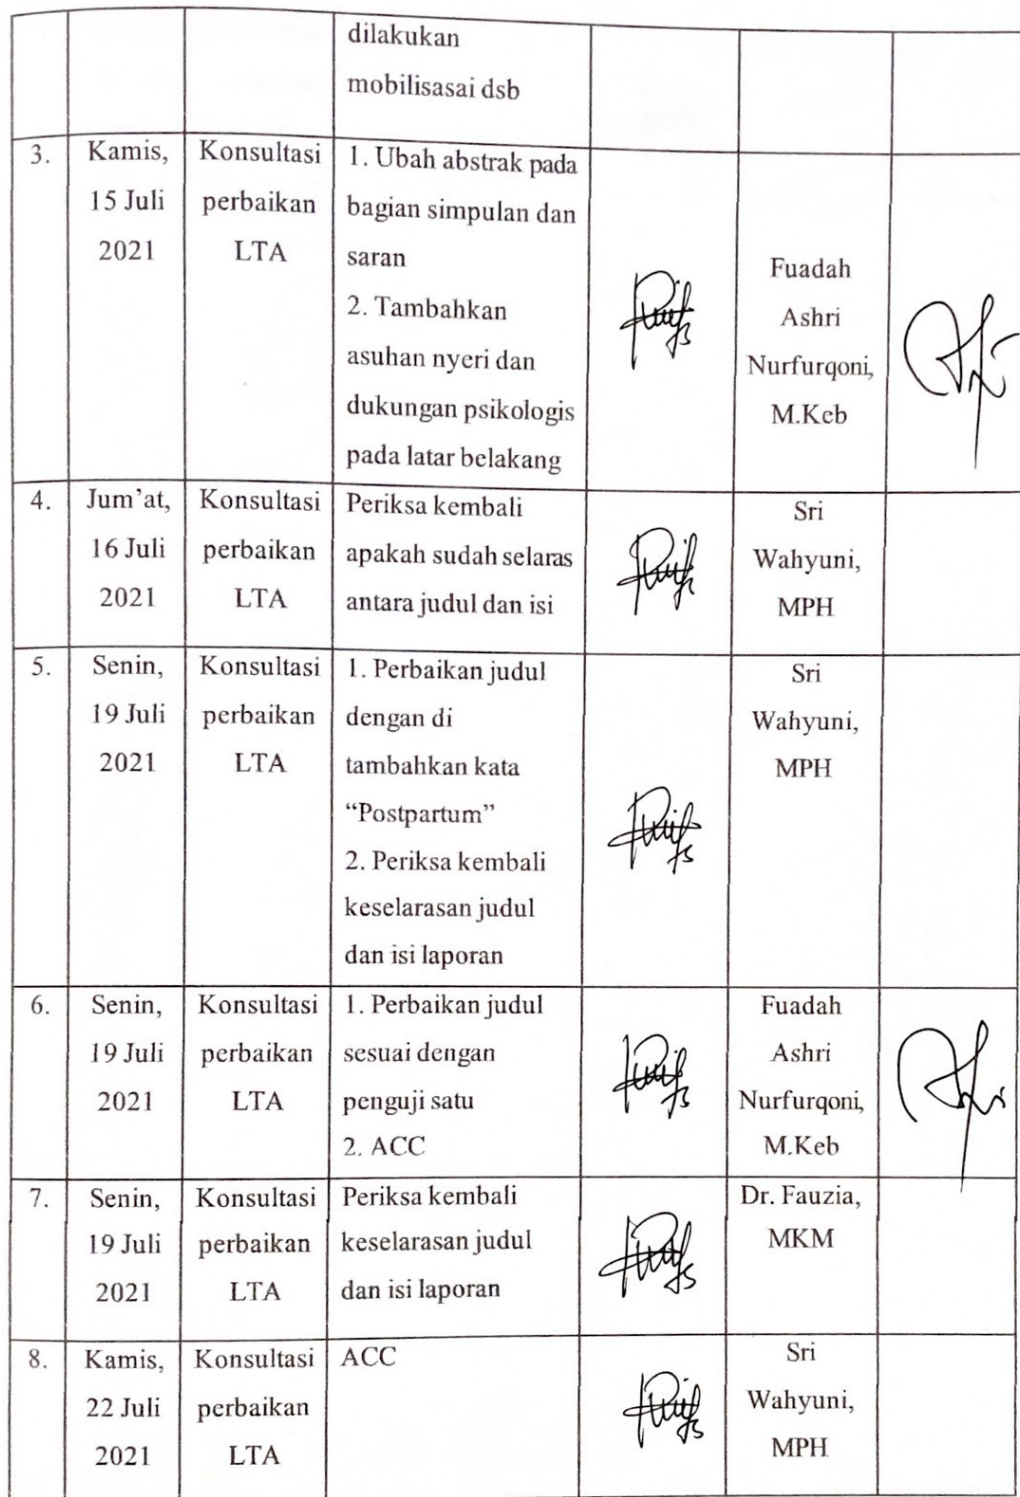 dilakukan
mobilisasai dsb
3.
Kamis,
15 Juli
2021
Konsultasi
perbaikan
LTA
1. Ubah abstrak pada
bagian simpulan dan
saran
2. Tambahkan
asuhan nyeri dan
dukungan psikologis
pada latar belakang
Fuadah
Ashri
Nurfurqoni,
M.Keb
4.
Jum’at,
16 Juli
2021
Konsultasi
perbaikan
LTA
Periksa kembali
apakah sudah selaras
antara judul dan isi
Sri
Wahyuni,
MPH
5.
Senin,
19 Juli
2021
Konsultasi
perbaikan
LTA
1. Perbaikan judul
dengan di
tambahkan kata
“Postpartum”
2. Periksa kembali
keselarasan judul
dan isi laporan
Sri
Wahyuni,
MPH
6.
Senin,
19 Juli
2021
Konsultasi
perbaikan
LTA
1. Perbaikan judul
sesuai dengan
penguji satu
2. ACC
Fuadah
Ashri
Nurfurqoni,
M.Keb
7.
Senin,
19 Juli
2021
Konsultasi
perbaikan
LTA
Periksa kembali
keselarasan judul
dan isi laporan
Dr. Fauzia,
MKM
8.
Kamis,
22 Juli
2021
Konsultasi
perbaikan
LTA
ACC
Sri
Wahyuni,
MPH